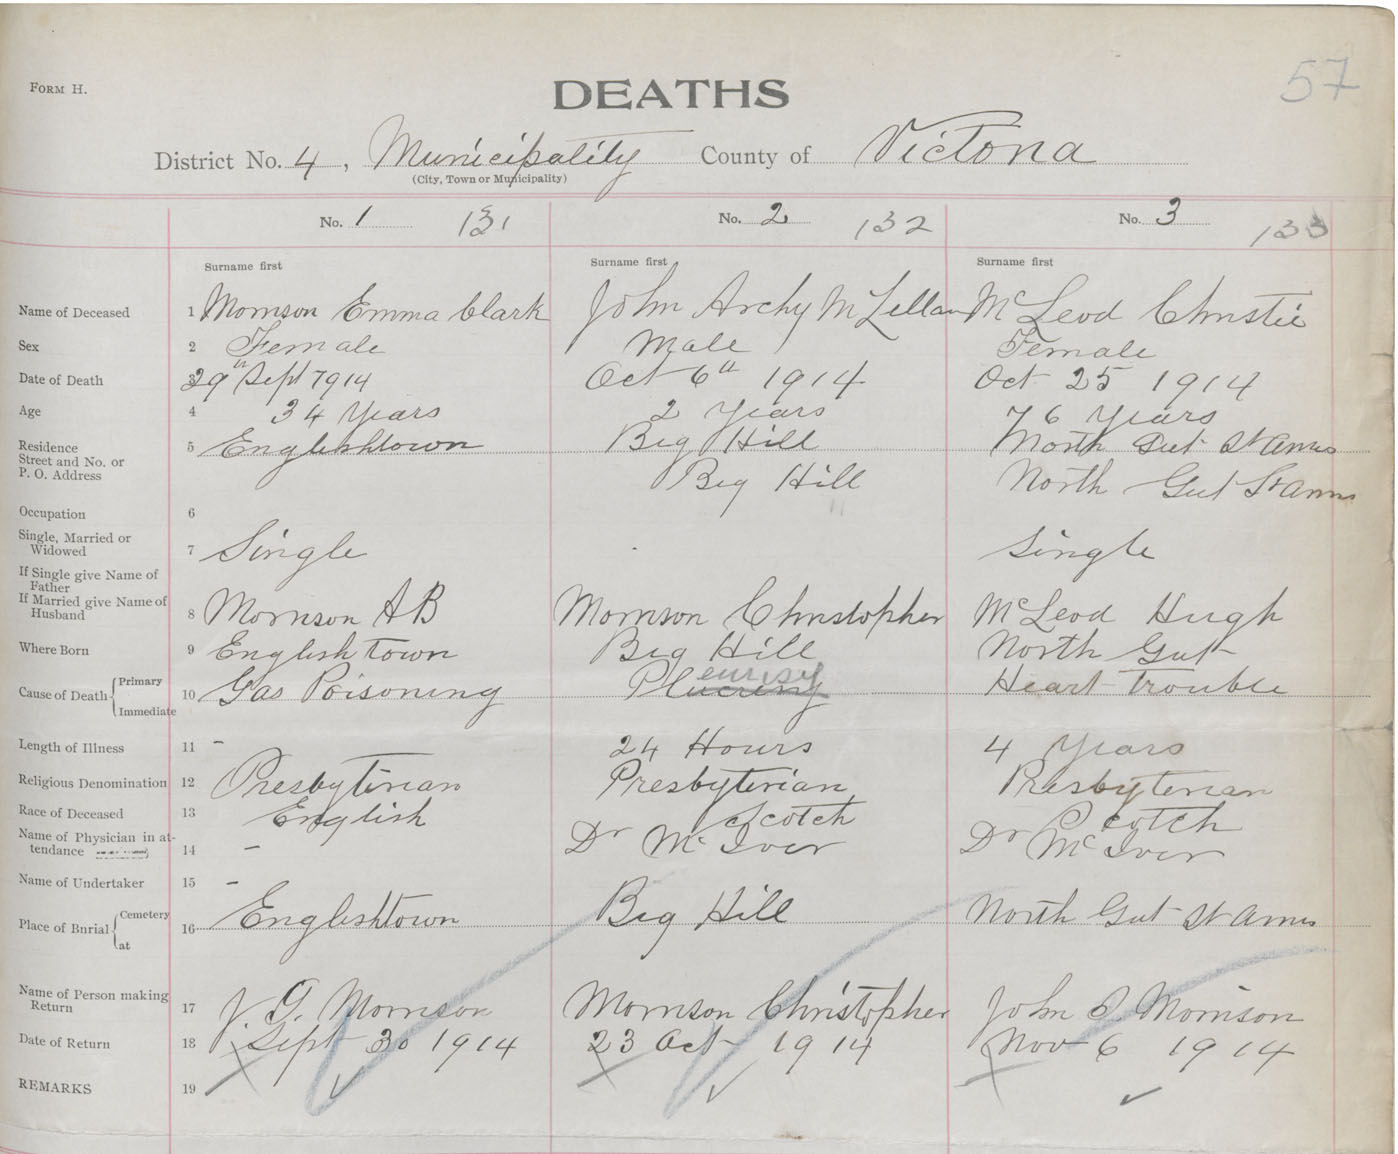 57
FORM H.
DEATHS
District No. 4, Municipality County of Victoria
(City, Town or Municipality)
No. 1 131 No. 2 132 No. 3 133
Surname first Surname first Surname first
Name of Deceased 1 Morrison Emma Clark John Archy McLellan McLeod Christie
Sex 2 Female Male Female
Date of Death 3 29th Sept 1914 Oct 6th 1914 Oct 25 1914
Age 4 34 Years 2 Years 76 Years
Residence 5 Englishtown Big Hill North Gut St Anns
Street and No. or
P. O. Address Big Hill North Gut St Anns
Occupation 6
Single, Married or
Widowed 7 Single Single
If Single give Name of
Father
If Married give Name of
Husband 8 Morrison A B Morrison Christopher McLeod Hugh
Where Born 9 Englishtown Big Hill North Gut
Cause of Death { Primary
Immediate 10 Gas Poisoning Pleurisy Heart Trouble
Length of Illness 11 - 24 Hours 4 Years
Religious Denomination 12 Presbyterian Presbyterian Presbyterian
Race of Deceased 13 English Scotch Scotch
Name of Physician in at-
tendance 14 - Dr McIver Dr McIver
Name of Undertaker 15 -
Place of Burial { Cemetery
at 16 Englishtown Big Hill North Gut St Anns
Name of Person making
Return 17 J. G. Morrison Morrison Christopher John Morrison
Date of Return 18 Sept 30 1914 23 Oct 1914 Nov 6 1914
REMARKS 19